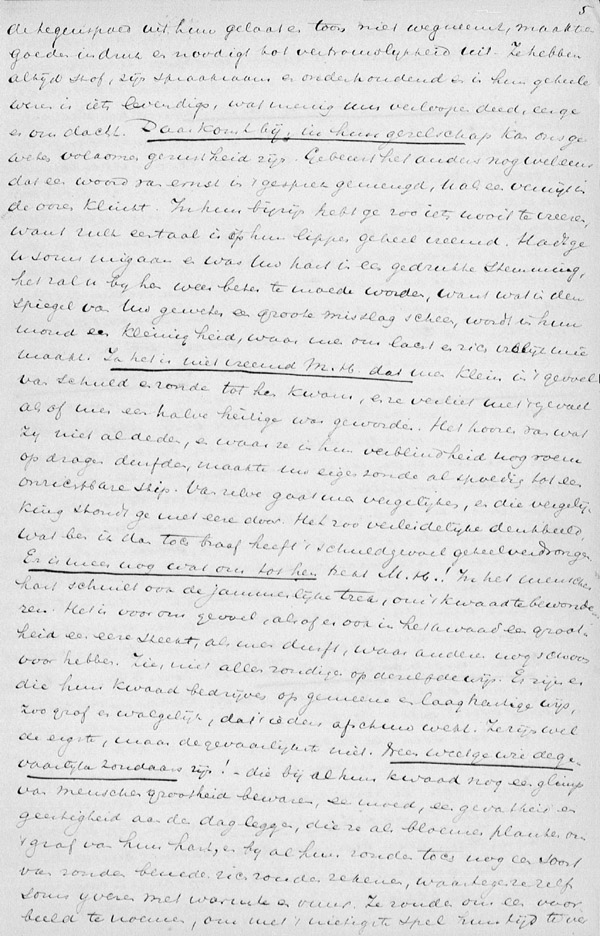 5
de tegenspoed uit hun gelaat en toon niet wegneemt, maakt een
goeden indruk en noodigt tot vertrouwelijkheid uit. Ze hebben
altijd stof, zijn spraakzaam en onderhoudend en in hun geheele
wezen is iets levendigs, wat menig uur verloopen deed, eer ge
er om dacht. Daar komt bij, in hun gezelschap kan ons ge-
weten volkomen gerust zijn. Gebeurt het anders nog wel eens
dat een woord van ernst in 't gesprek gemengd, u als een verwijt in
de ooren klinkt. In hun bijzijn hebt ge zoo iets nooit te vreezen,
want zulk een taal is op hun lippen geheel vreemd. Hadt ge
u soms misgaan en was Uw hart in een gedrukte stemming,
het zal u bij hen weer beter te moede worden, want wat in den
spiegel van Uw geweten een groote misslag scheen, wordt in hun
mond een kleinigheid, waar men om lacht en zich vrolijk mee
maakt. Ja het is niet vreemd M.H. dat men klein in 't gevoel
van schuld en zonde tot hen kwam, en ze verliet met 't gevoel
alsof men een halve heilige was geworden. Het hooren van wat
zij niet al deden, en waar ze in hun verblindheid nog roem
op dragen durfden, maakte uw eigen zonde al spoedig tot een
onzichtbare stip. Van zelve gaat men vergelijken, en die vergelij-
king stondt ge met eere door. Het zoo verleidelijke denkbeeld,
wat ben ik dan toch braaf heeft 't schuldgevoel geheel verdrongen.
Er is meer nog wat ons tot hen trekt M.H.! In het menschen
hart schuilt ook de jammerlijke trek, om 't kwaad te bewonde-
ren. Het is voor ons gevoel, alsof er ook in het kwaad een groot-
heid en eere steekt, als men durft, waar anderen nog schroom
voor hebben. Zie, niet allen zondigen op dezelfde wijs. Er zijn er
die hun kwaad bedrijven op gemeene en laaghartige wijs,
zoo grof en walgelijk, dat 't ieders afschuw wekt. Ze zijn wel
de ergste, maar de gevaarlijkste niet. Neen, weet ge wie de ge-
vaarlijke zondaars zijn! - die bij al hun kwaad nog een glimp
van menschen grootheid bewaren, een moed, een gevatheid en
geestigheid aan den dag leggen, die ze als bloemen planten om
't graf van hun hart, en bij al hun zonden toch nog een soort
van zonden beneden zich zouden rekenen, waartegen ze zelf
soms ijveren met warmte en vuur. Ze zouden om een voor-
beeld te noemen, om met 't nietigste spel hun tijd te ver